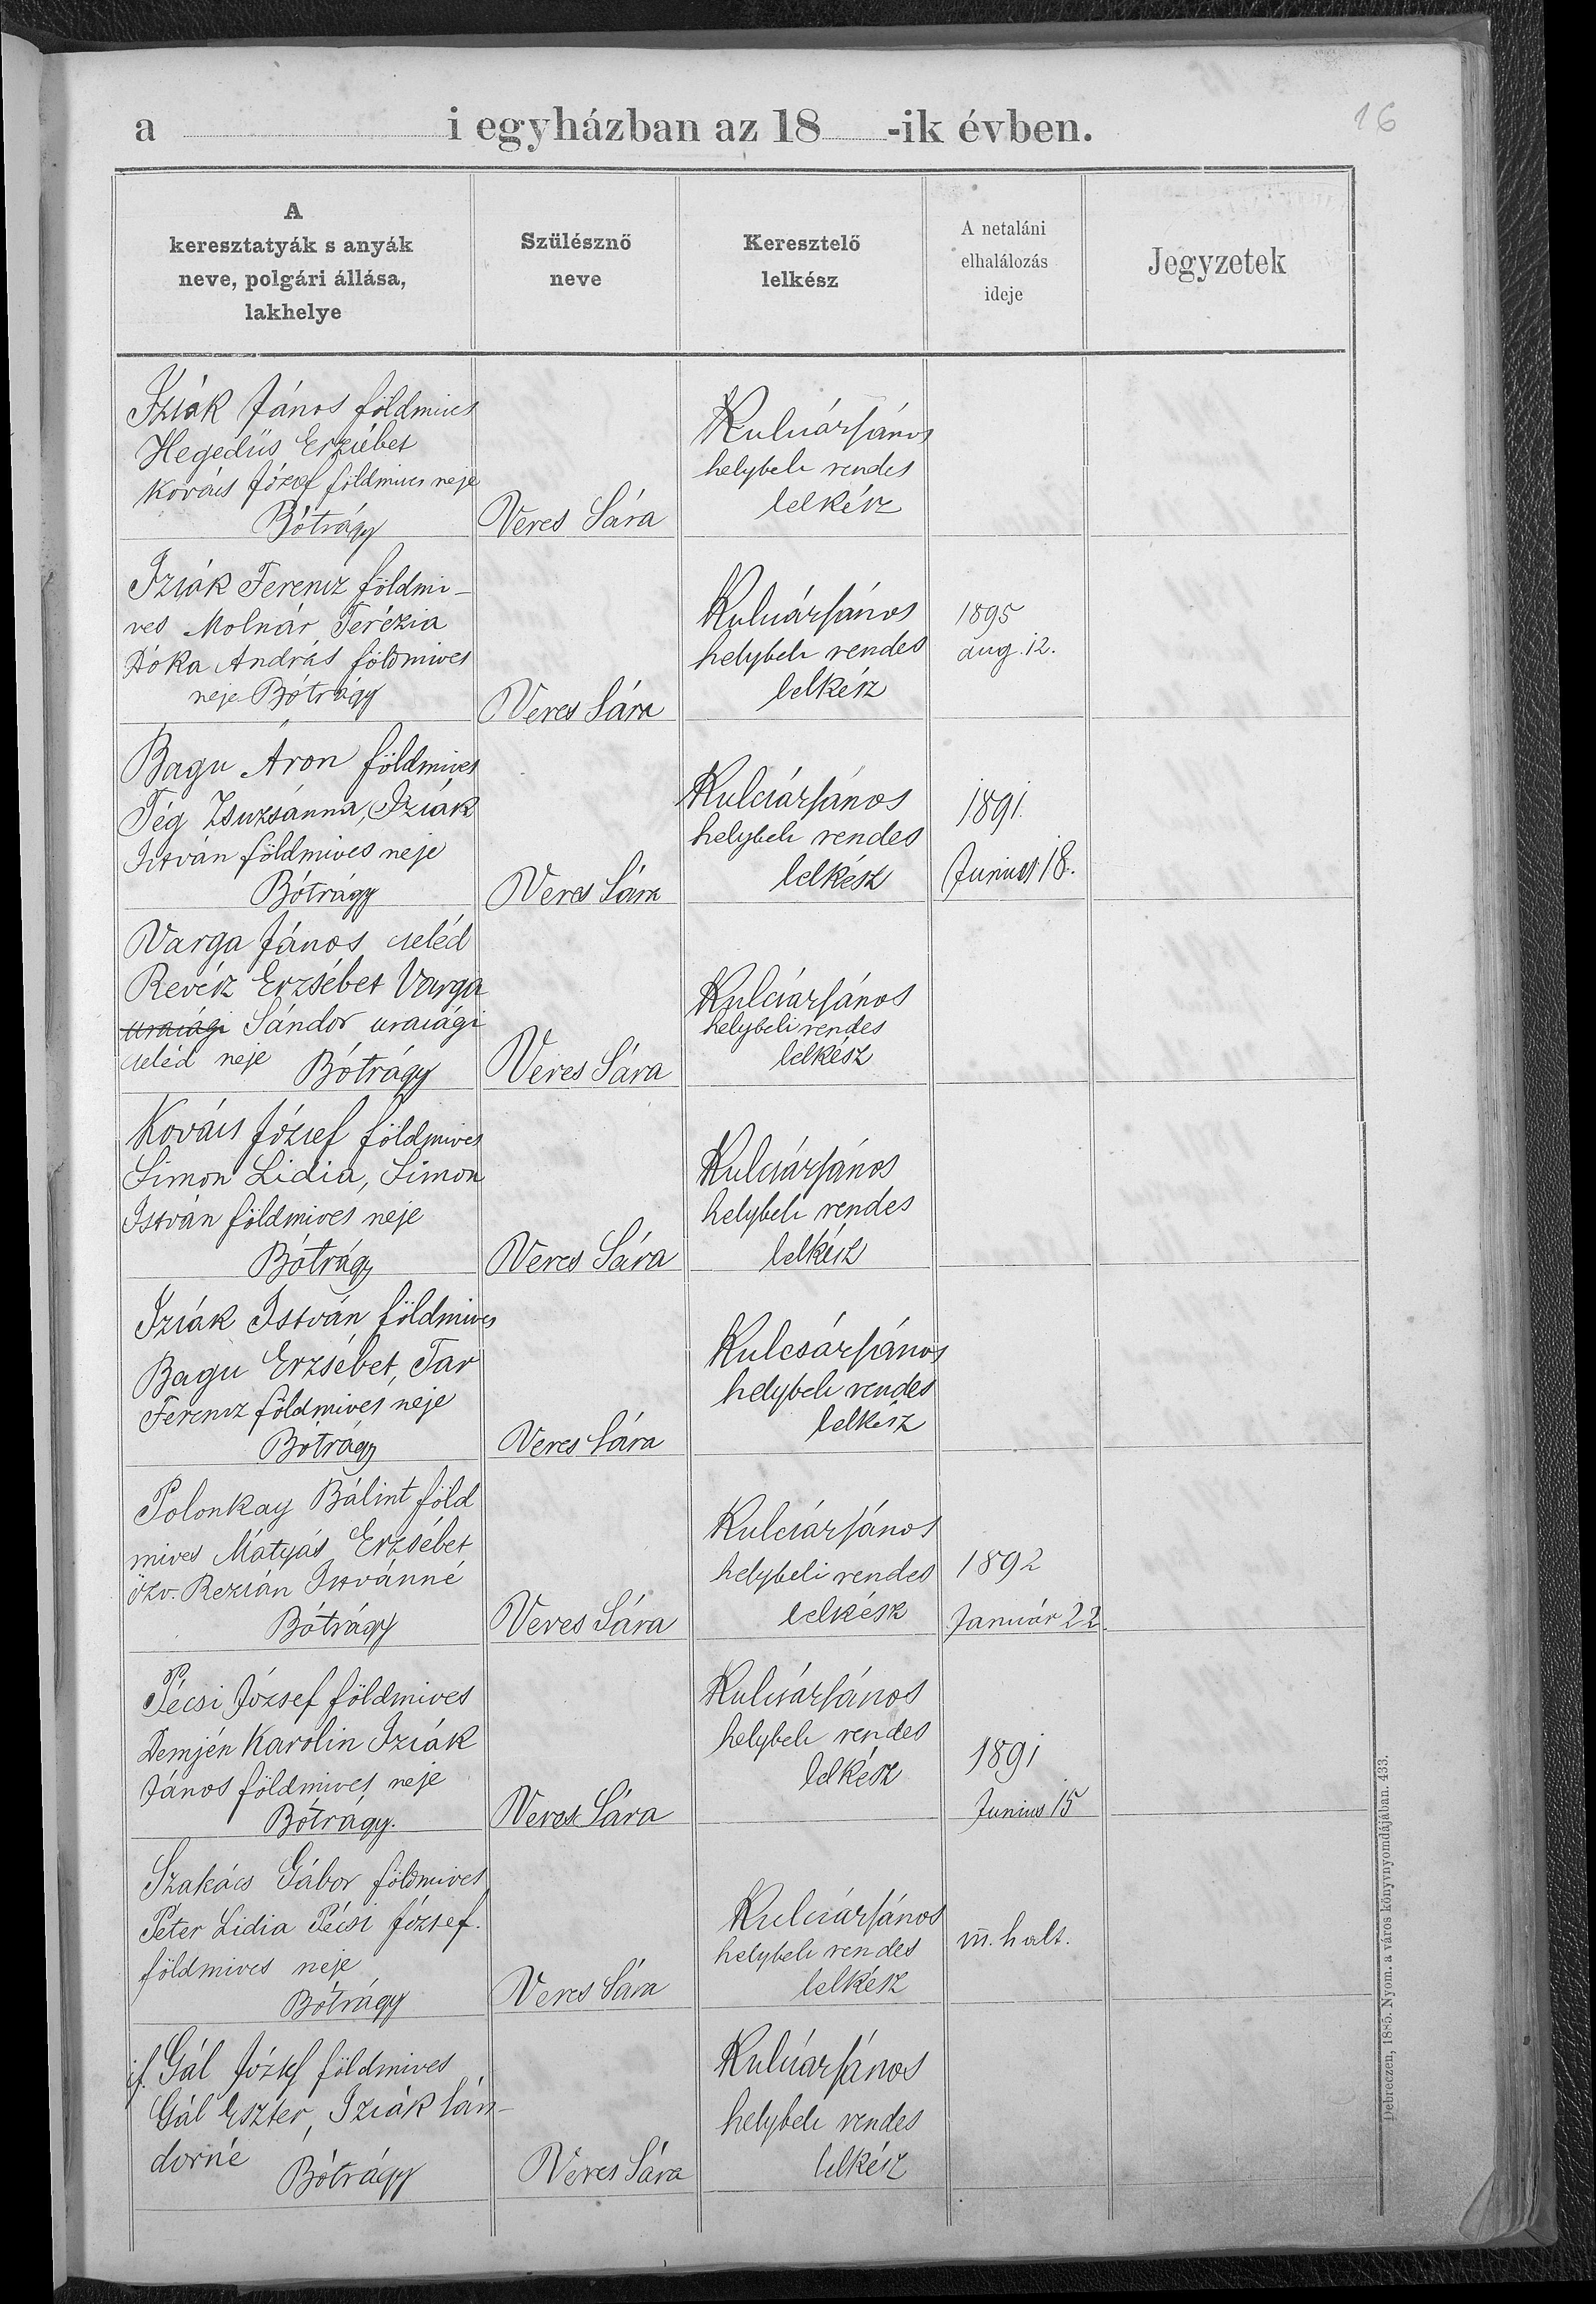 16
a i egyházban az 18 -ik évben.
A
keresztatyák s anyák
neve, polgári állása,
lakhelye
Szülésznő
neve
Keresztelő
lelkész
A netaláni
elhalálozás
ideje
Jegyzetek
Izsák János földmives
Hegedüs Erzsébet
Kovács József földmives neje
Bótrágy
Veres Sára
Kulcsár János
helybeli rendes
lelkész
Izsák Ferencz földmi-
ves Molnár Terézia
Dóka András földmives
neje Bótrágy
Veres Sára
Kulcsár János
helybeli rendes
lelkész
1895
aug. 12.
Bagu Áron földmives
Tég Zsuzsánna, Izsák
István földmives neje
Bótrágy
Veres Sára
Kulcsár János
helybeli rendes
lelkész
1891.
Junius 18.
Varga János cseléd
Revész Erzsébet Varga
urasági Sándor urasági
cseléd neje Bótrágy
Veres Sára
Kulcsár János
helybeli rendes
lelkész
Kovács József földmives
Simon Lidia, Simon
István földmives neje
Bótrágy
Veres Sára
Kulcsár János
helybeli rendes
lelkész
Izsák István földmives
Bagu Erzsébet, Tar
Ferencz földmives neje
Bótrágy
Veres Sára
Kulcsár János
helybeli rendes
lelkész
Polonkay Bálint föld
mives Mátyás Erzsébet
özv. Rezsán Istvánné
Bótrágy
Veres Sára
Kulcsár János
helybeli rendes
lelkész
1892
Január 22.
Pécsi József földmives
Demjén Karolin Izsák
János földmives neje
Bótrágy.
Veres Sára
Kulcsár János
helybeli rendes
lelkész
1891
Junius 15
Szakács Gábor földmives
Péter Lidia Pécsi József.
földmives neje
Bótrágy
Veres Sára
Kulcsár János
helybeli rendes
lelkész
m. halt.
if. Gál József földmives
Gál Eszter, Izsák Sán-
dorné Bótrágy
Veres Sára
Kulcsár János
helybeli rendes
lelkész
Debreczen, 1885. Nyom. a város könyvnyomdájában. 433.